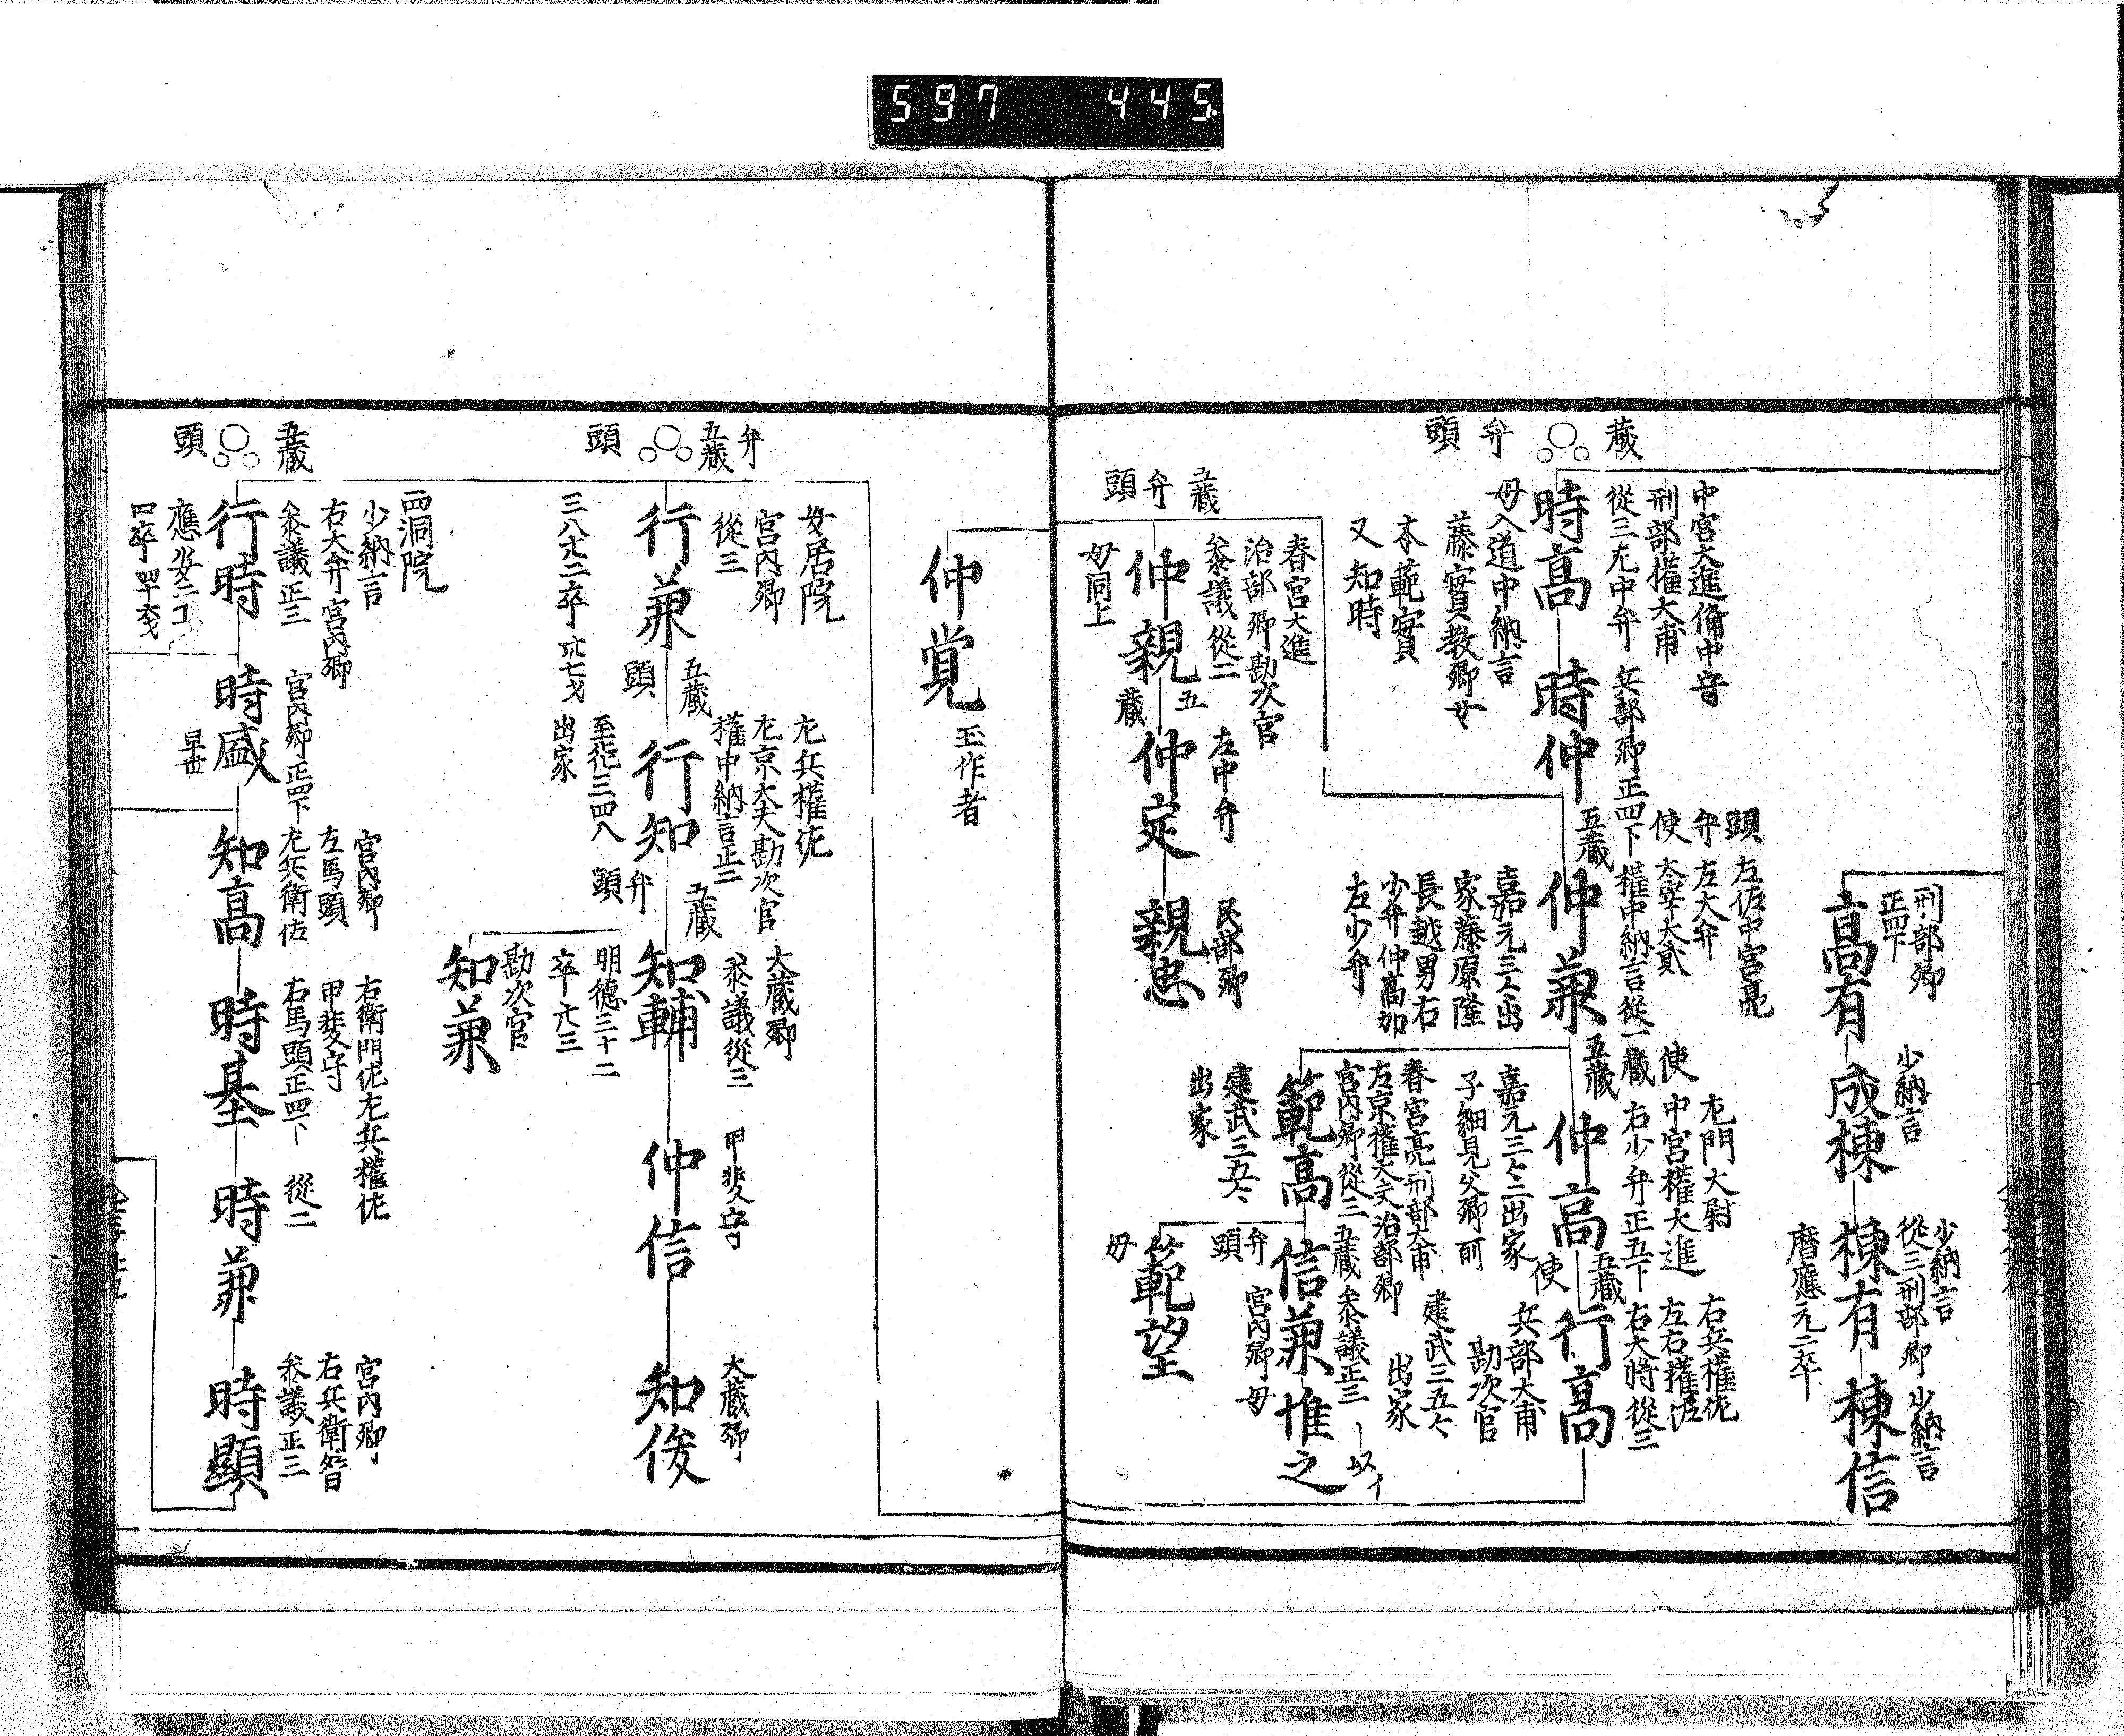 597 445.
刑部卿
正四下
高有
少納言
成棟
少納言
從三刑部卿
棟有
暦應元二卒
少納言
棟信
藏
弁
頭
中宮大進備中守
刑部權大甫
從三左中弁
時高
母入道中納言
藤實教卿女
本範實
又知時
兵部卿正四下
時仲
頭
弁
使
五藏
左佐中宮亮
左大弁
太宰大貳
權中納言從一
仲兼
嘉元三
家藤原隆
長越男右
少弁仲高加
左少弁
使
藏
五藏
左門大尉
中宮權大進
右少弁正五下
仲高
嘉元三二出家
子細見父卿前
五藏
使
右兵權佐
右大將從三
行高
兵部大甫
勘次官
建武三五
出家
春宮亮刑部大甫
左京權大夫治部卿
宮內卿從三
範高
建武三五
出家
五藏
弁
頭
參議正三
信兼
宮內卿
母
惟之
範望
母
五藏
弁
頭
春宮大進
治部卿勘次官
參議從二
仲親
母同上
五
藏
左中弁
仲定
民部卿
親忠
仲覚
玉作者
弁
五藏
頭
安居院
宮內卿
從三
行兼
五藏
頭
左兵權佐
左京大夫勘次官
權中納言正二
行知
出家
五藏
弁
頭
大藏卿
參議從三
知輔
明德三十二
卒六三
勘次官
知兼
甲斐守
仲信
大藏卿
知俊
五藏
頭
西洞院
少納言
右大弁宮內卿
參議正三
行時
宮內卿正四下
時盛
早世
宮內卿
左馬頭
左兵衛佐
知高
右衛門佐左兵權佐
甲斐守
右馬頭正四
時基
從二
時兼
宮內卿
右兵衛督
參議正三
時顯